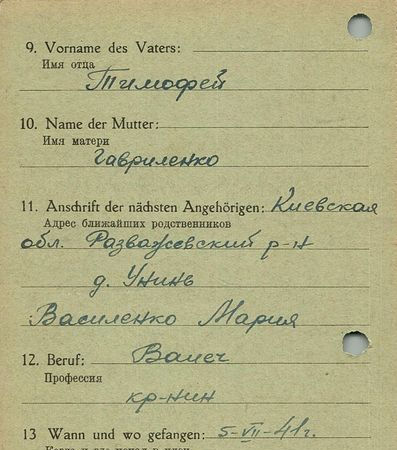 9. Vorname des Vaters:
Имя отца
Тимофей
10. Name der Mutter:
Имя матери
Гавриленко
11. Anschrift der nächsten Angehörigen: Киевская
Адрес ближайших родственников
обл. Розважевский р-н
д. Унинь
Василенко Мария
12. Beruf:
Профессия
кр-нин
13 Wann und wo gefangen: 5-VII-41г.